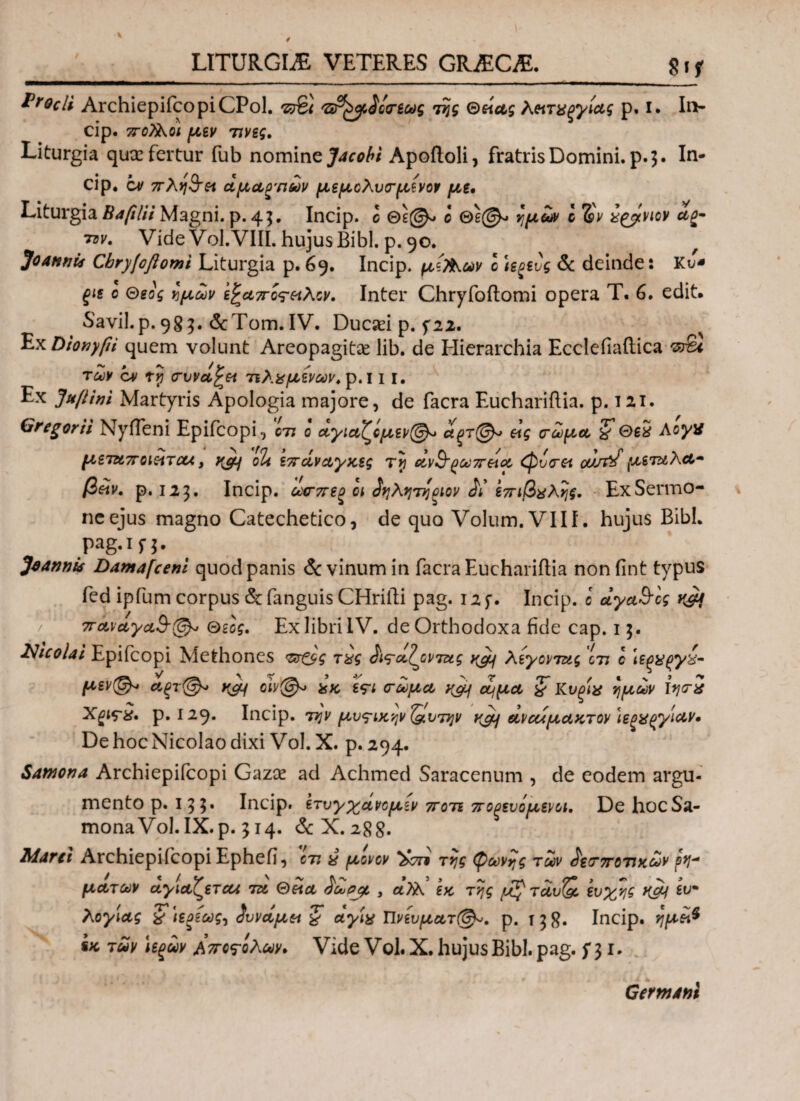 LITURGIÆ VETERES GRÆCÆ. 815
Procli ArchiepiscopiCPol. περὶ παραδόσεως τῆς Θείας λειτουργίας p. 1. In-
cip. πολλοὶ μὲν τινές.
Liturgia quæ fertur sub nomine Jacobi Apostoli, fratris Domini. p.3. In-
cip. ἐν πλήθει ἁμαρτιῶν μεμολυσμένον με.
Liturgia Basilii Magni. p. 43. Incip. ὁ Θεὸς ὁ Θεὸς ἡμῶν ὁ τὸν οὐράνιον ἄρ-
τον. Vide Vol. VIII. hujus Bibl. p. 90.
Joannis Chrysostomi Liturgia p. 69. Incip. μέλλων ὁ ἱερεὺς & deinde: Κύ-
ριε ὁ Θεὸς ἡμῶν ἐξαπόστειλον. Inter Chrysostomi opera T. 6. edit.
Savil. p. 983. & Tom. IV. Ducæi p. 522.
Ex Dionysii quem volunt Areopagitæ lib. de Hierarchia Ecclesiastica περὶ
τῶν ἐν τῇ συνάξει τελουμένων. p. 111.
Ex Justini Martyris Apologia majore, de sacra Eucharistia. p. 121.
Gregorii Nysseni Episcopi, ὅτι ὁ ἁγιαζόμενος ἄρτος εἰς σῶμα τοῦ Θεοῦ Λόγου
μεταποιεῖται, καὶ ὅτι ἐπάναγκες τῇ ἀνθρωπείᾳ φύσει αὐτοῦ μεταλα-
βεῖν. p. 123. Incip. ὥσπερ οἱ δηλητήριον δι' ἐπιβουλῆς. Ex Sermo-
ne ejus magno Catechetico, de quo Volum. VIII. hujus Bibl.
pag. 153.
Joannis Damasceni quod panis & vinum in sacra Eucharistia non sint typus
sed ipsum corpus & sanguis CHristi pag. 125. Incip. ὁ ἀγαθὸς καὶ
πανάγαθος Θεός. Ex libri IV. de Orthodoxa fide cap. 13.
Nicolai Episcopi Methones πρὸς τοὺς διστάζοντας καὶ λέγοντας ὅτι ὁ ἱερουργού-
μενος ἄρτος καὶ οἶνος οὐκ ἔστι σῶμα καὶ αἷμα τοῦ Κυρίου ἡμῶν Ἰησοῦ
Χριστοῦ. p. 129. Incip. τὴν μυστικὴν ταύτην καὶ ἀναίμακτον ἱερουργίαν.
De hoc Nicolao dixi Vol. X. p. 294.
Samona Archiepiscopi Gazæ ad Achmed Saracenum , de eodem argu-
mento p. 133. Incip. ἐτυγχάνομέν ποτε πορευόμενοι. De hoc Sa-
mona Vol. IX. p. 314. & X. 288.
Marci Archiepiscopi Ephesi, ὅτι οὐ μόνον ἀπὸ τῆς φωνῆς τῶν δεσποτικῶν ῥη-
μάτων ἁγιάζεται τὰ Θεῖα δῶρα , ἀλλ' ἐκ τῆς μετὰ ταῦτα εὐχῆς καὶ εὐ-
λογίας τοῦ ἱερέως, δυνάμει τοῦ ἁγίου Πνεύματος. p. 138. Incip. ἡμεῖς
ἐκ τῶν ἱερῶν Ἀποστόλων. Vide Vol. X. hujus Bibl. pag. 531.
Germani